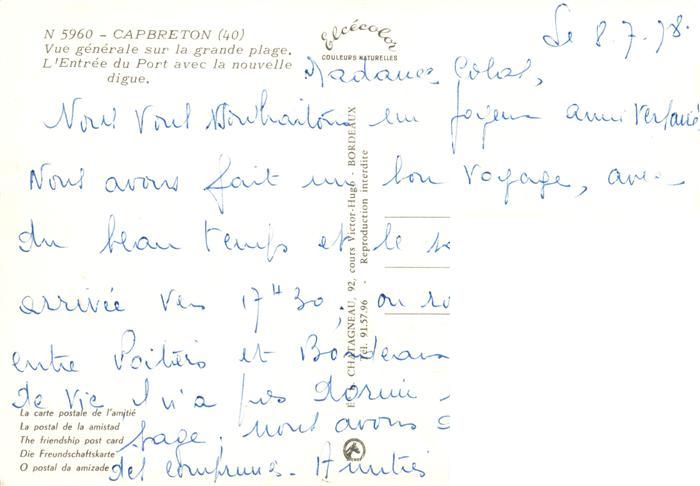 N 5960 - CAPBRETON (40)
Vue générale sur la grande plage.
L'Entrée du Port avec la nouvelle
digue.
Elcécolor
COULEURS NATURELLES
Le 8.7.78.
Madame
Nous vous souhaitons un joyeux anniversaire
Nous avons fait un bon voyage, avec
du beau temps et le
arrivée vers 17H30, on
entre Poitiers et Bordeaux
de Vic il n'a pas dormi
page. nous avons
des comprimés. Amitiés
CHATAGNEAU, 92, cours Victor-Hugo - BORDEAUX
Tél. 91.57.96 - Reproduction interdite
La carte postale de l'amitié
La postal de la amistad
The friendship post card
Die Freundschaftskarte
O postal da amizade